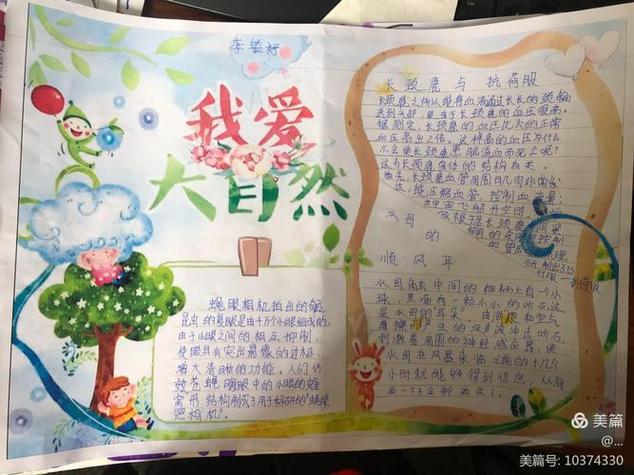 我爱
大自然
蝇眼相机拍出的
昆虫的复眼是由4万个小眼组成的,
由于小眼之间的相互抑制,
使眼具有突出影像的边框
增大清晰的功能,人们仿
效苍蝇
窝形结构制成了用于科研的“蝇眼
照相机”。
长颈鹿与抗荷服
长颈鹿之所以能将血液通过长长的颈输
送到头部,是由于长颈鹿的血压很高。
据测定,长颈鹿的血压比人的正常
血压高出2倍。这样高的血压为什么
不会使长颈鹿患脑溢血而死亡呢?
这与长颈鹿身体的结构有关
首先,长颈鹿血管周围的肌肉非常发
达,能压缩血管,控制血流量;
水母
的
顺风耳
水母触手中间的细柄上有一个小
球,里面有一粒小小的听石,这
是水母的“耳朵”。由海浪和空气
摩擦而产生的次声波冲击听石,
刺激着周围的神经感应器,使
水母在风暴来临之前的十几个
小时就能够得到信息,从海
面一下子全部消失了。
美篇
@...
美篇号: 10374330